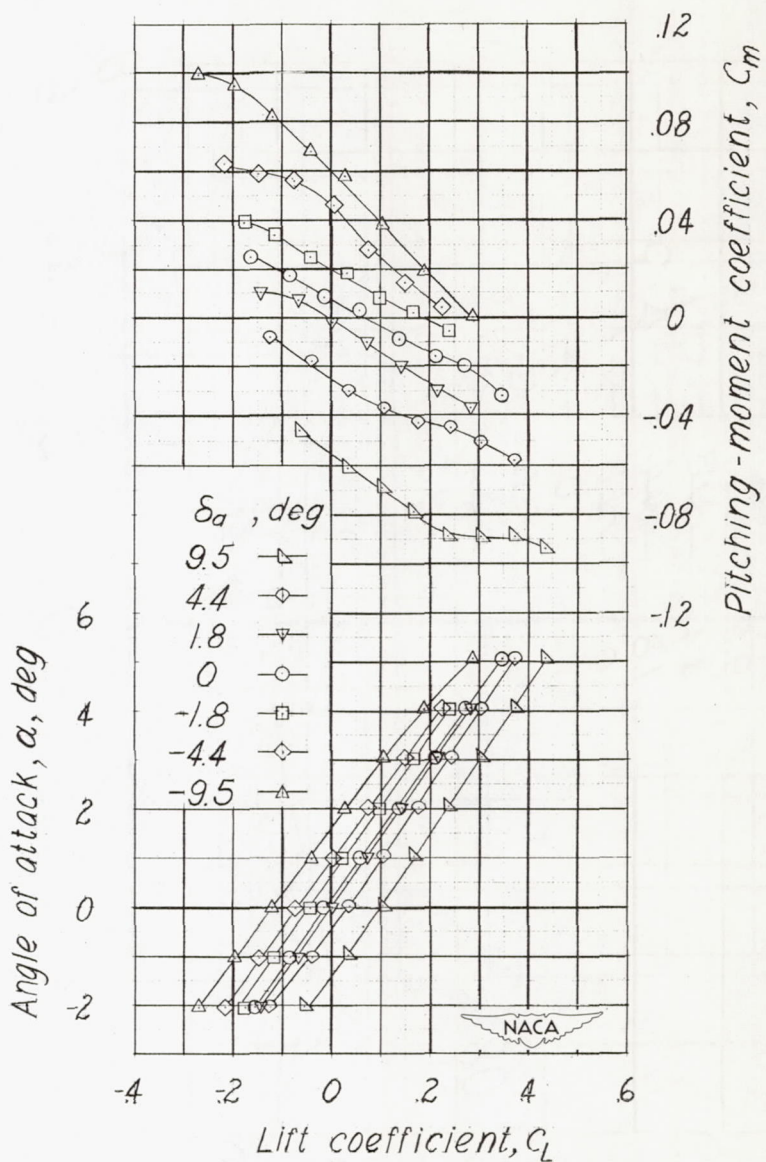 .12
.08
.04
0
-.04
-.08
-.12
Pitching-moment coefficient, Cm
δa , deg
9.5
4.4
1.8
0
-1.8
-4.4
-9.5
6
4
2
0
-2
Angle of attack, α, deg
NACA
-.4 -.2 0 .2 .4 .6
Lift coefficient, CL